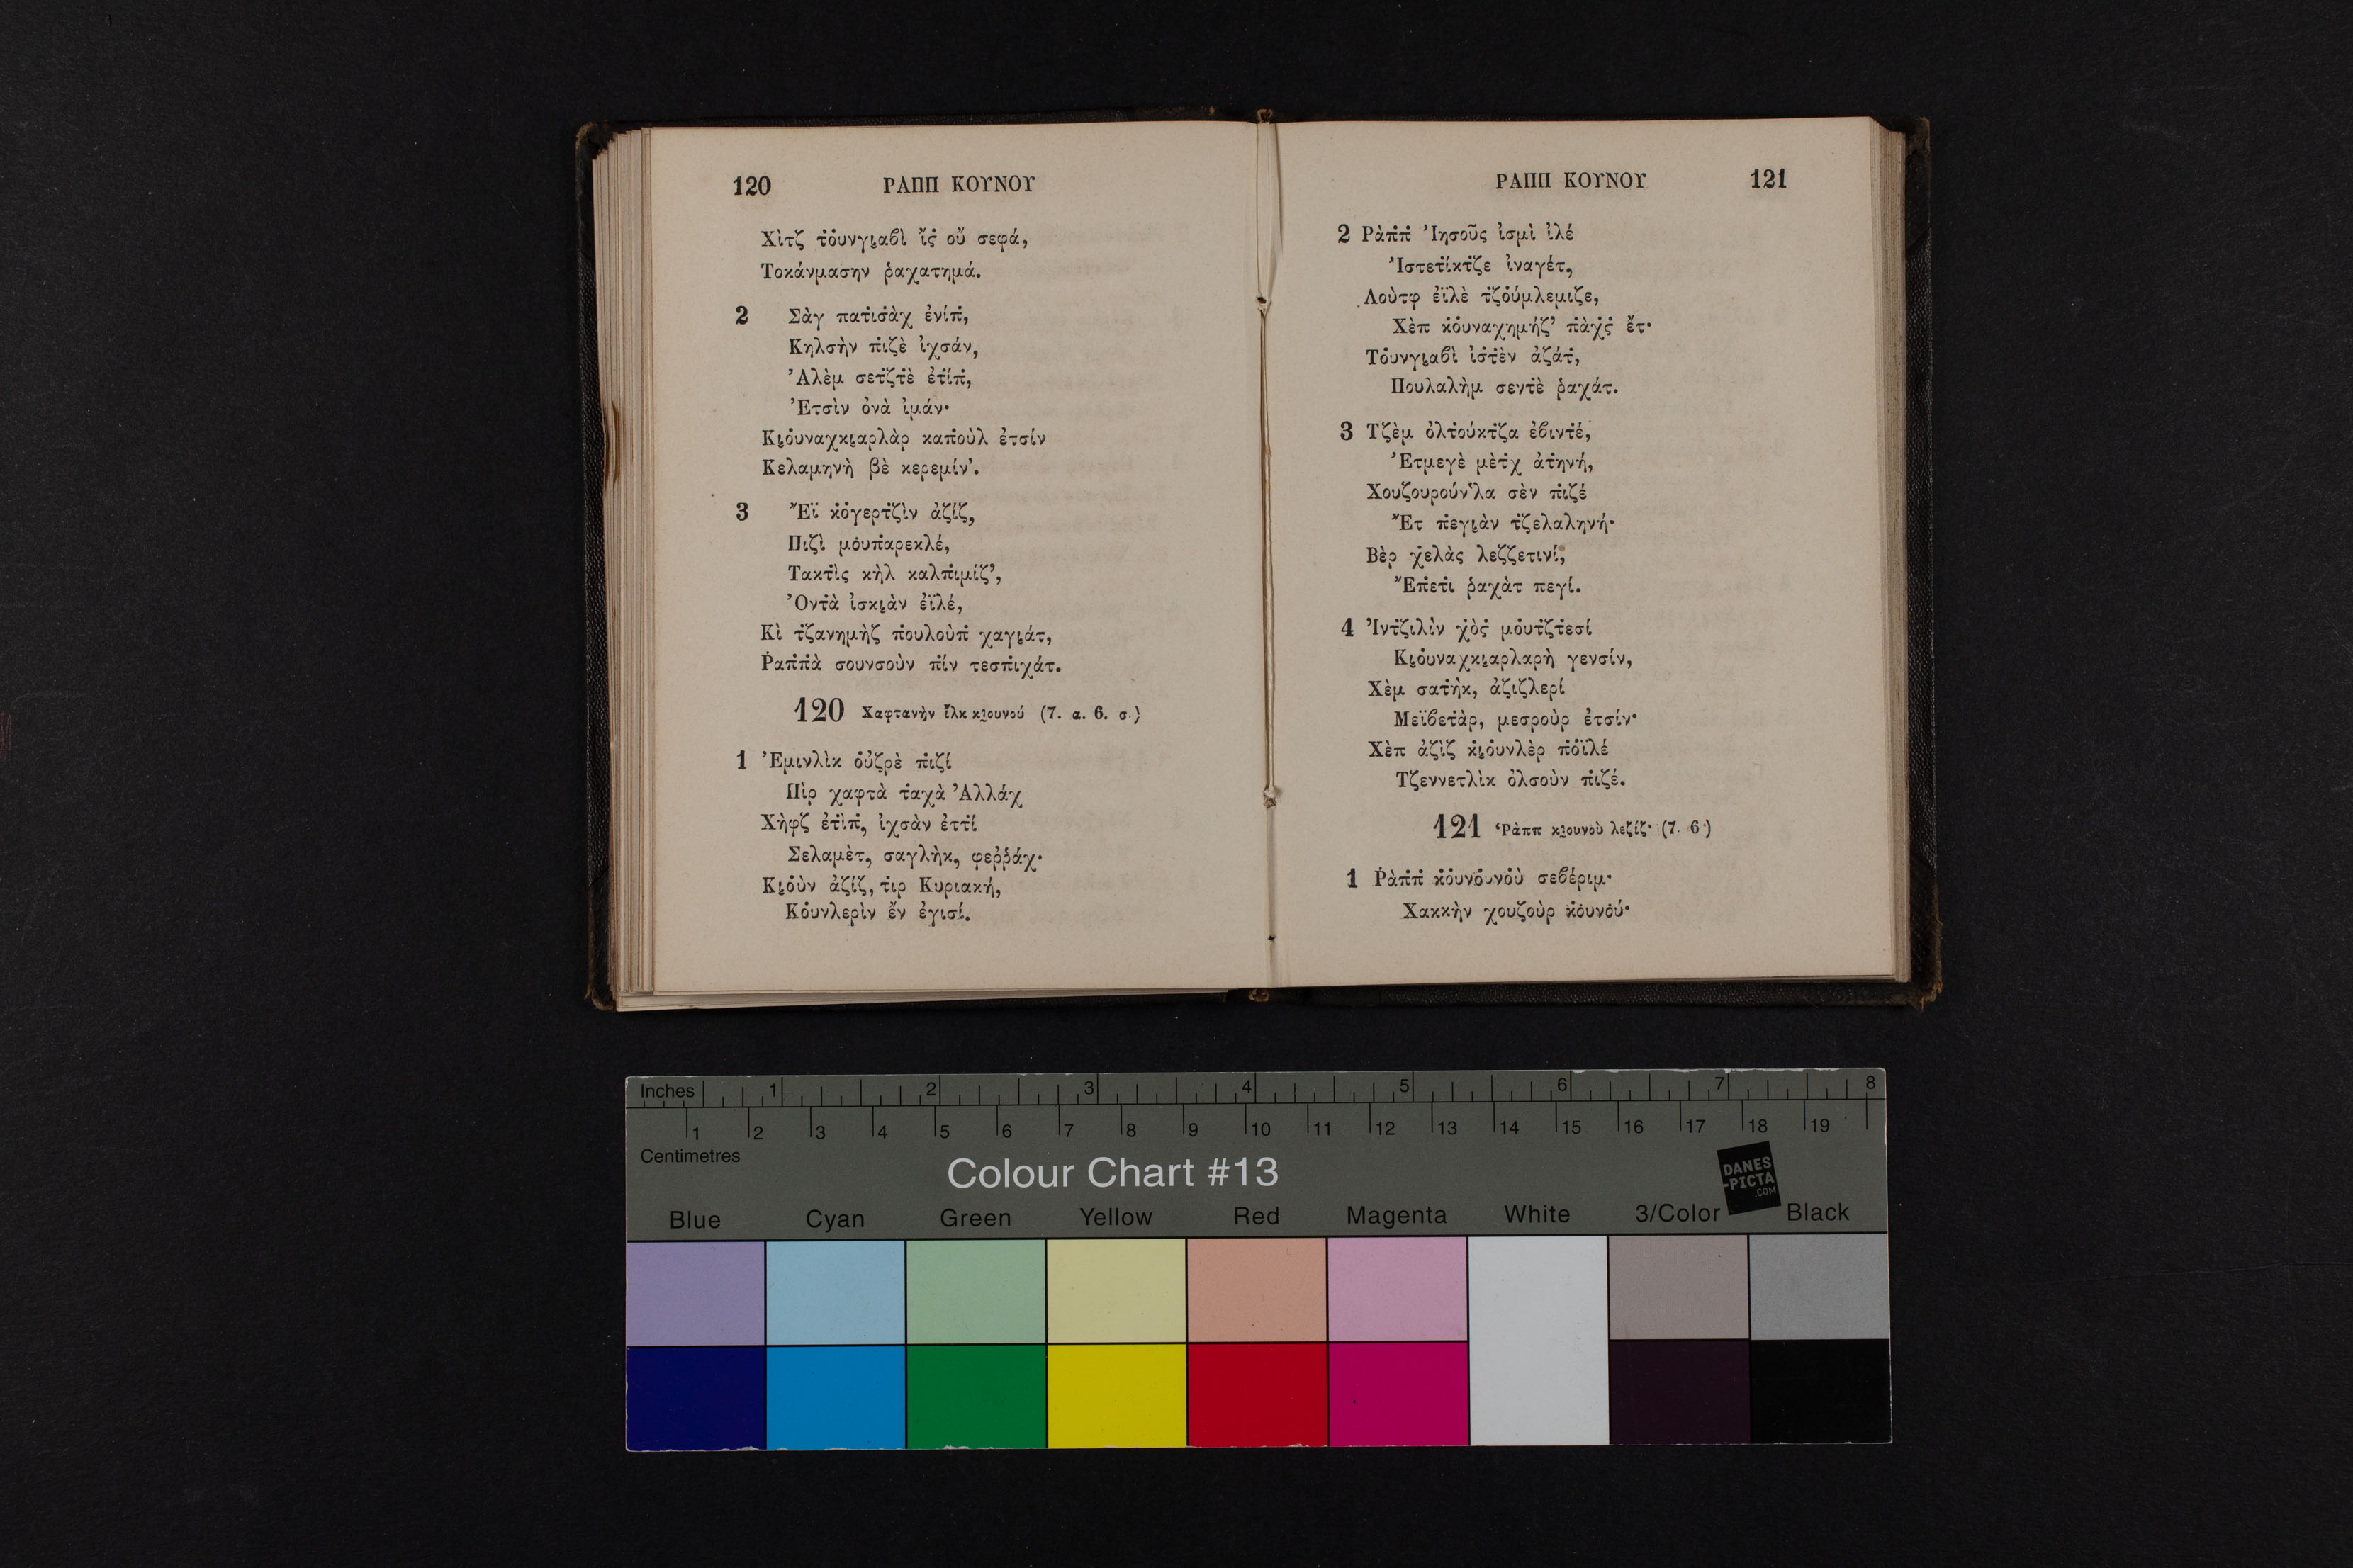 120 ΡΑΠΠ ΚΟΥΝΟΥ
Χὶτζ τ̇ὀυνγι̮αβὶ ἴς̇ οὔ σεφά,
Τοκάνμασην ῥαχατημά.
2 Σὰγ πατ̇ισ̇ὰχ ἐνίπ̇,
Κηλσὴν π̇ιζὲ ἰχσάν,
Ἀλὲμ σετ̇ζτ̇ὲ ἐτ̇ίπ̇,
Ἐτσὶν ὀνὰ ἰμάν·
Κι̮ὀυναχκι̮αρλὰρ καπ̇οὺλ ἐτσίν
Κελαμηνὴ βὲ κερεμίν'.
3 Ἔϊ κ̇ὀγερτ̇ζὶν ἀζίζ,
Πιζὶ μὀυπ̇αρεκλέ,
Τακτ̇ὶς κὴλ καλπ̇ιμίζ',
Ὀντ̇ὰ ἰσκι̮ὰν ἐϊλέ,
Κὶ τ̇ζανημὴζ π̇ουλοὺπ̇ χαγι̮άτ,
Ῥαπ̇π̇ὰ σουνσοὺν π̇ίν τεσπ̇ιχάτ.
120 Χαφτανὴν ἴλκ κι̮ουνού (7. α. 6. σ.)
1 Ἐμινλὶκ ὀὐζρὲ π̇ιζί
Πὶρ χαφτὰ τ̇αχὰ Ἀλλάχ
Χὴφζ ἐτ̇ὶπ̇, ἰχσὰν ἐττ̇ί
Σελαμὲτ, σαγλὴκ, φεῤῥάχ·
Κι̮ὀὺν ἀζίζ, τ̇ιρ Κυριακή,
Κὀυνλερὶν ἔν ἐγισί.
ΡΑΠΠ ΚΟΥΝΟΥ 121
2 Ρὰπ̇π̇ Ἰησοῦς ἰσμὶ ἰλέ
Ἰστετ̇ίκτ̇ζε ἰναγέτ,
Λοὺτφ ἐϊλὲ τ̇ζὀύμλεμιζε,
Χὲπ κ̇ὀυναχημήζ' π̇ὰχ̇ς̇ ἔτ·
Τὀυνγι̮αβὶ ἰσ̇τ̇ὲν ἀζάτ̇,
Πουλαλὴμ σεντ̇ὲ ῥαχάτ.
3 Τζὲμ ὀλτ̇ούκτ̇ζα ἐβιντ̇έ,
Ἐτμεγὲ μὲτ̇χ ἀτ̇ηνή,
Χουζουρούν'λα σὲν π̇ιζέ
Ἔτ π̇εγι̮ὰν τ̇ζελαληνή·
Βὲρ χ̇ελὰς λεζζετινί,
Ἔπ̇ετ̇ι ῥαχὰτ πεγί.
4 Ἰντ̇ζιλὶν χ̇ὸς̇ μὀυτ̇ζτ̇εσί
Κι̮ὀυναχκι̮αρλαρὴ γενσίν,
Χὲμ σατ̇ὴκ, ἀζιζλερί
Μεϊβετ̇ὰρ, μεσροὺρ ἐτσίν·
Χὲπ ἀζὶζ κι̮ὀυνλὲρ π̇ὀϊλέ
Τζεννετλὶκ ὀλσοὺν π̇ιζέ.
121 Ῥὰππ κι̮ουνοὺ λεζίζ· (7. 6·)
1 Ῥὰπ̇π̇ κ̇ὀυνὀυνὀὺ σεβέριμ·
Χακκὴν χουζοὺρ κ̇ὀυνὀύ·
Inches 1 2 3 4 5 6 7 8
1 2 3 4 5 6 7 8 9 10 11 12 13 14 15 16 17 18 19
Centimetres
Colour Chart #13
DANES
-PICTA
.COM
Blue Cyan Green Yellow Red Magenta White 3/Color Black